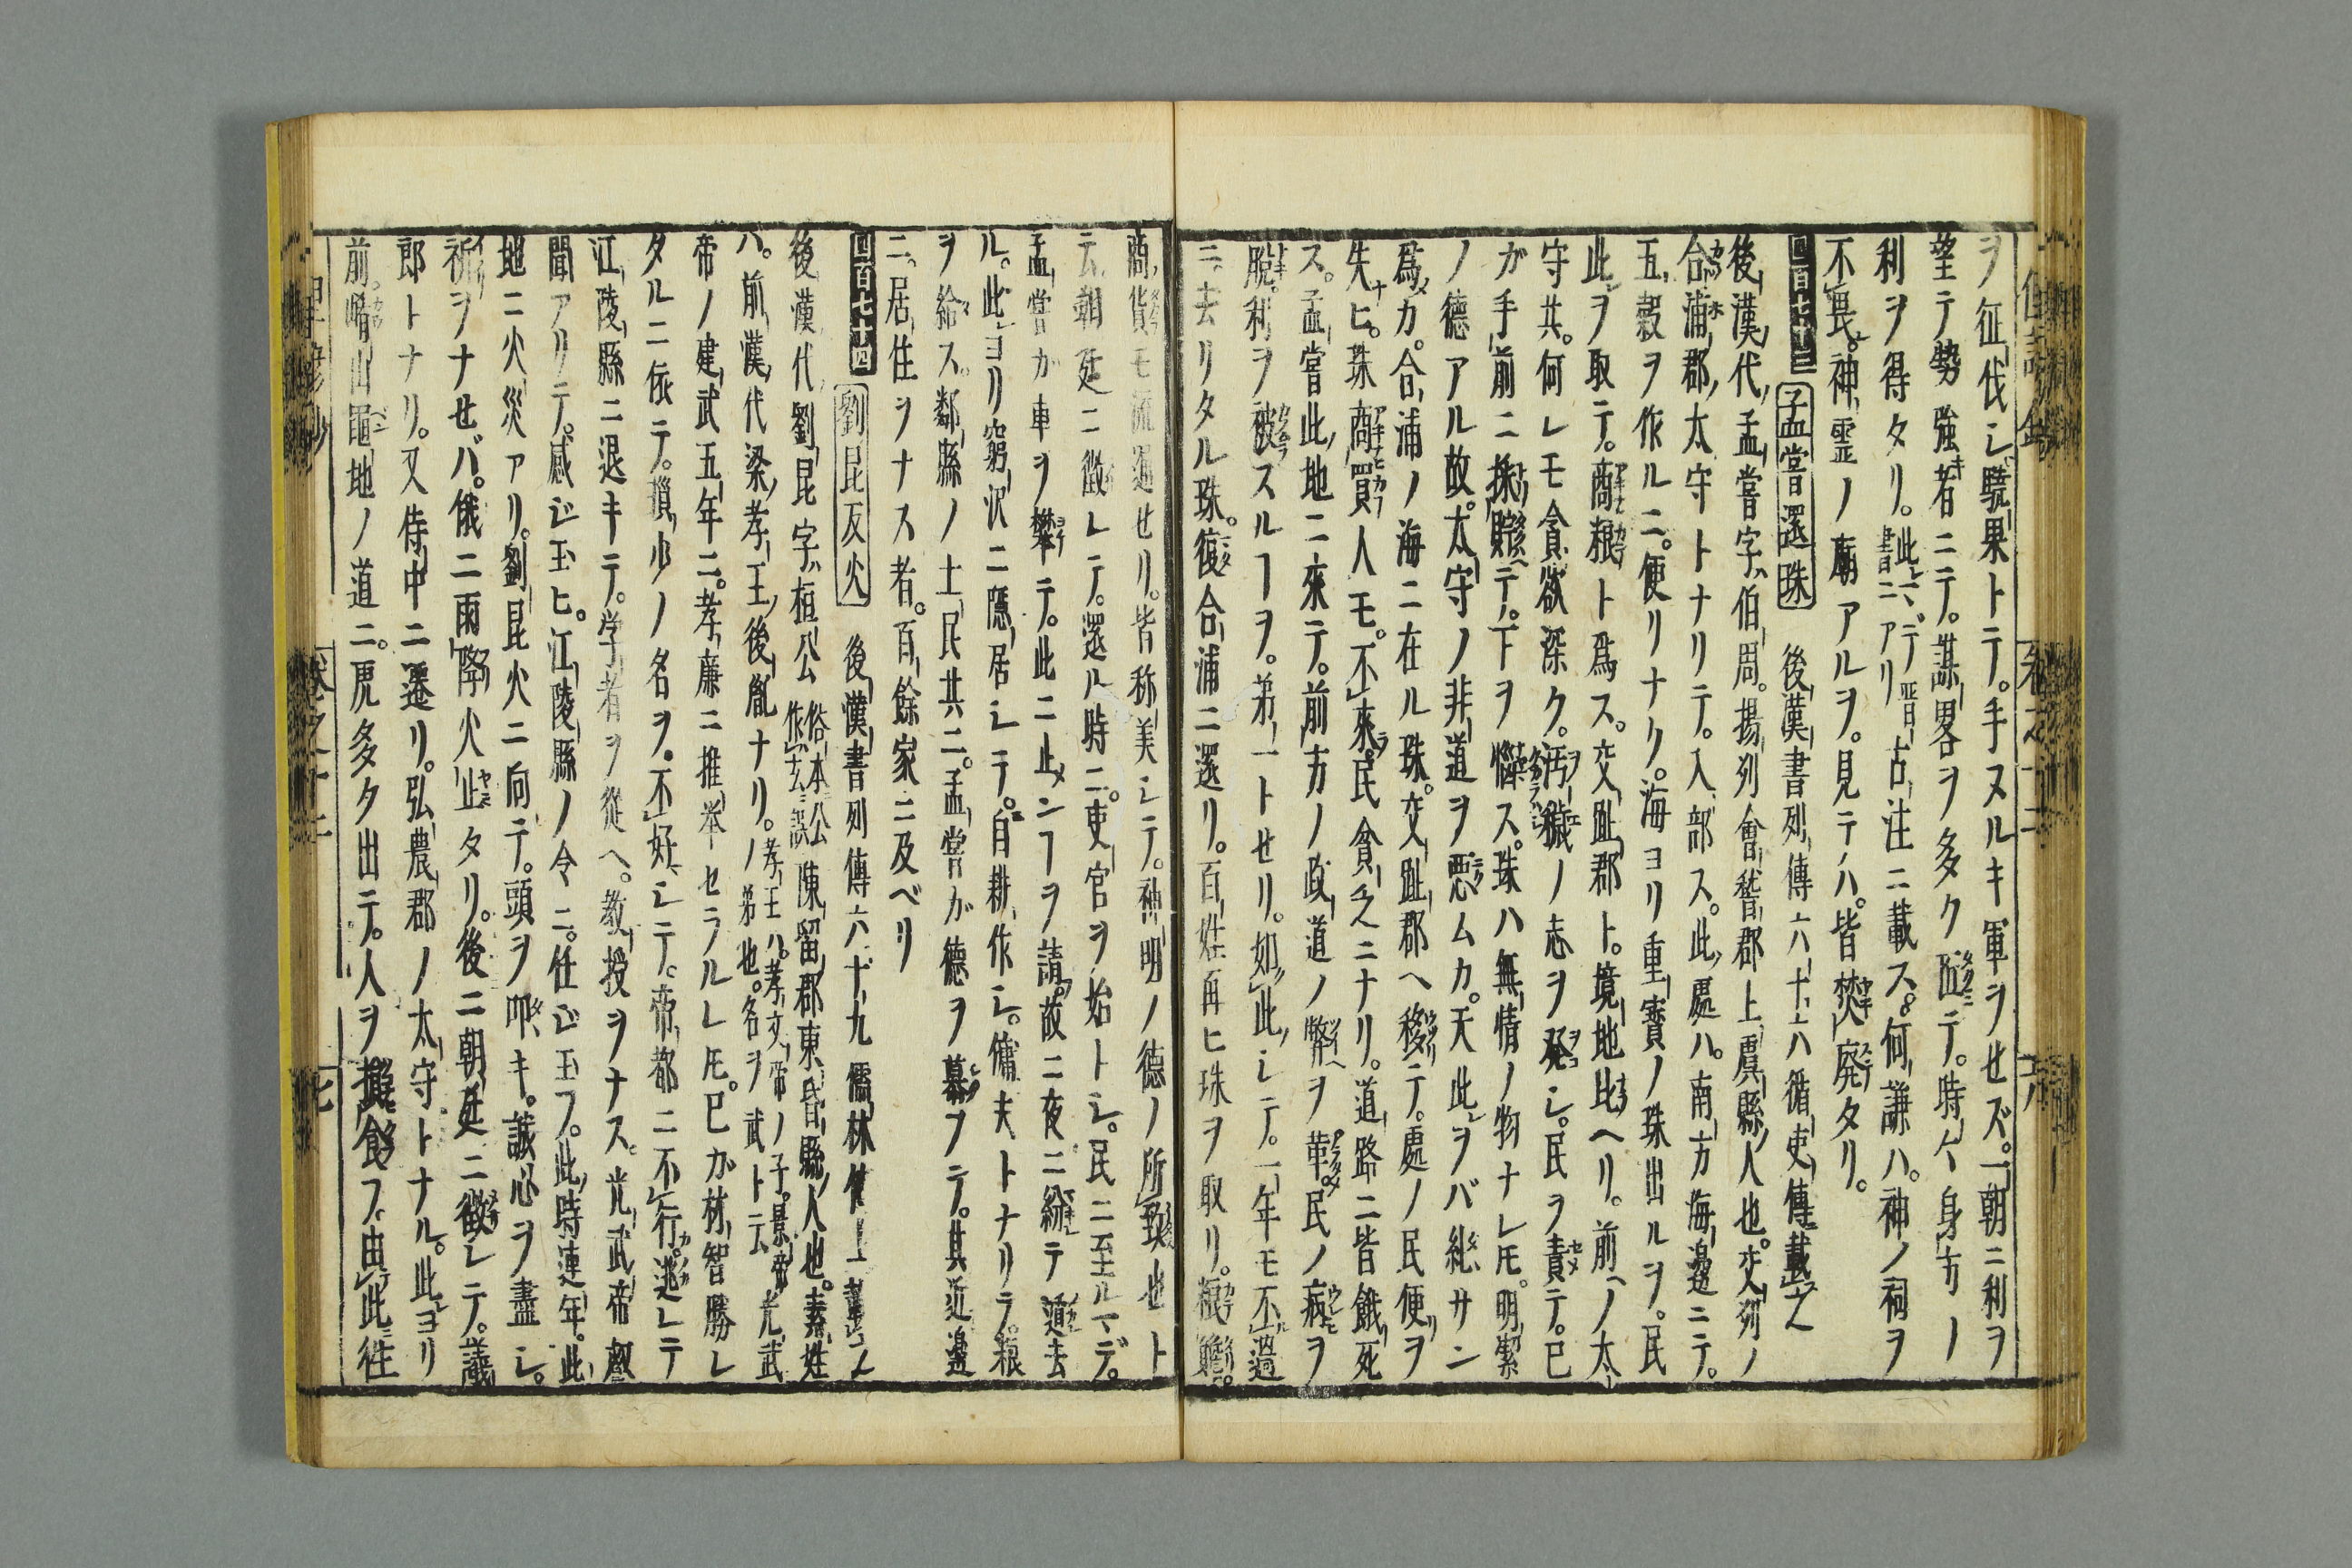 ヲ征伐シ驍果トテ。手ヌルキ軍ヲセズ。一朝ニ利ヲ
望テ勢強若ニテ。謀畧ヲ多タク テ。時人身方ノ
利ヲ得タリ。此コヽデ晋書ニアリ古注ニ載ス。何謙ハ。神ノ祠ヲ
不畏。神霊ノ廟アルヲ。見テハ。皆焚廃タリ。
四百七十三 孟嘗還珠 後漢書列傳六十六循吏傳載之
後漢代孟嘗字伯周。揚列會稽郡上虞縣人也。交列ノ
合浦郡太守トナリテ。入部ス。此處ハ。南方海邊ニテ。
五穀ヲ作ルニ。便リナク。海ヨリ重寶ノ珠出ルヲ。民
此ヲ取テ。商粮ト爲ス。交趾郡ト。境地比ヘリ。前ノ太
守共。何レモ貪欲深ク。汚穢ノ志ヲ発シ。民ヲ責テ。已
ガ手前ニ採貯テ。下ヲ惱ス。珠ハ無情ノ物ナレ𪜈。明絜
ノ德アル故。太守ノ非道ヲ悪ムカ。天此ヲバ糺サン
爲カ。合浦ノ海ニ在ル珠。交趾郡ヘ移テ。處ノ民便ヲ
失ヒ。珠商買人モ。不來。民貪乏ニナリ。道路ニ皆餓死
ス。孟嘗此地ニ來テ。前方ノ政道ノ弊ヲ革。民ノ病ヲ
脫。利ヲ被スルヿヲ。第一トセリ。如此シテ。一年モ不過
ニ。去リタル珠。復合浦ニ還リ。百姓再ヒ珠ヲ取リ。粮
商貨モ流通セリ。皆称美シテ。神明ノ德ノ所致也ト
云。朝廷ニ徴レテ。還ル時ニ。吏官ヲ始トシ。民ニ至ルマデ。
孟嘗ガ車ヲ攀テ。此ニ止ンヿヲ請。故ニ夜ニ紛テ 去
ル。此ヨリ窮沢ニ隱居シテ。自耕作シ。傭夫トナリテ。粮
ヲ給ス。鄰縣ノ士民共ニ。孟嘗ガ德ヲ慕フテ。其近邊
ニ。居住ヲナス者。百餘家ニ及ベリ
四百七十四 劉昆反火 後漢書列傳六十九儒林傳上載之
後漢代劉昆字桓公俗本公作玄誤陳留郡東昏縣人也。素姓
ハ。前漢代梁孝王ノ後胤ナリ。孝王ハ。孝文帝ノ子。景帝ノ弟也。名ヲ武ト云 光武
帝ノ建武五年ニ。孝廉ニ推举セラルレ𪜈。已ガ材智勝レ
タルニ依テ。損少ノ名ヲ。不好シテ。帝都ニ不行。逃レテ
江陵縣ニ退キテ。学者ヲ從ヘ。教授ヲナス。光武帝
聞アリテ。感ジ玉ヒ。江陵縣ノ令ニ。任ジ玉フ。此時連年。此
地ニ火災アリ。劉昆火ニ向テ。頭ヲ叩キ。誠心ヲ盡シ。
祈ヲナセバ。俄ニ雨降火止タリ。後ニ朝廷ニ徴レテ。議
郎トナリ。又侍中ニ遷リ。弘農郡ノ太守トナル。此ヨリ
前。崤山黽地ノ道ニ。虎多タ出テ。人ヲ 食フ。由此往
卷之十三